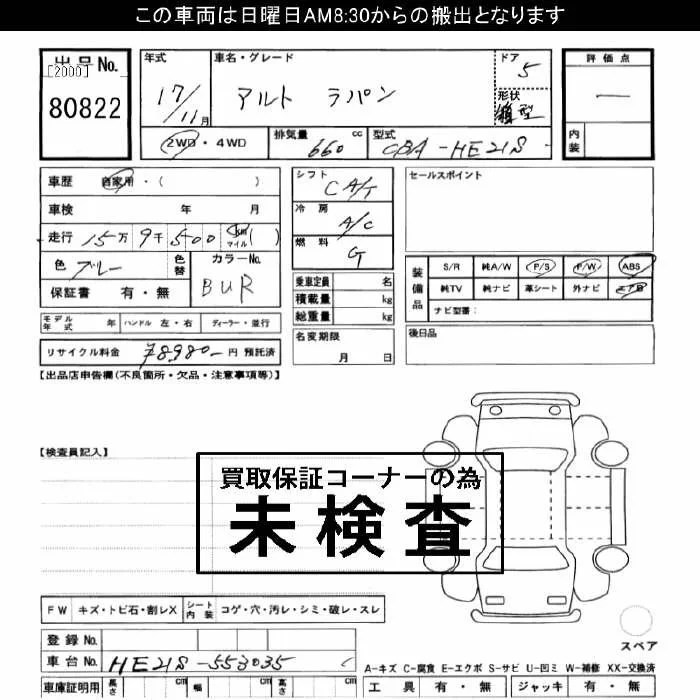 この車両は日曜日AM8:30からの搬出となります
出品No.
[2000]
80822
年式
17/11月
車名・グレード
アルト ラパン
ドア
5
形状
箱型
評価点
—
内装
2WD・4WD
排気量 660 cc
型式 CBA-HE21S
車歴 自家用・( )
車検 年 月
走行 15万9千500 km マイル ( )
色 ブルー
色替
カラーNo.
BUR
保証書 有・無
シフト
CA/T
冷房
A/C
燃料
G
乗車定員 名
積載量 kg
総重量 kg
セールスポイント
装備品
S/R 純A/W P/S P/W ABS
純TV 純ナビ 革シート 外ナビ エアB
ナビ型番:
モデル年式 年
ハンドル 左・右
ディーラー・並行
名変期限
月 日
後日品
リサイクル料金 ¥8,980- 円 預託済
【出品店申告欄(不良箇所・欠品・注意事項等)】
【検査員記入】
買取保証コーナーの為
未検査
FW キズ・トビ石・割レX
シート内装 コゲ・穴・汚レ・シミ・破レ・スレ
スペア
登録No.
車台No. HE21S-553035
A-キズ C-腐食 E-エクボ S-サビ U-凹ミ W-補修 XX-交換済
車庫証明用 長さ cm 幅 cm 高さ cm
工具 有・無 ジャッキ 有・無